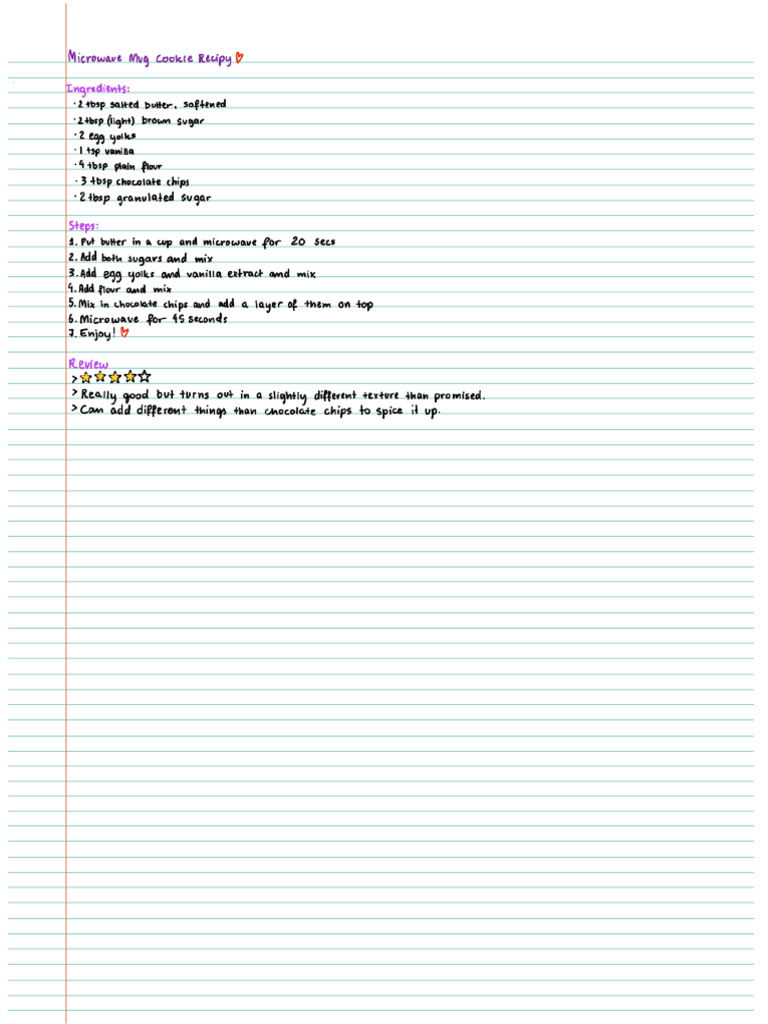 Microwave Mug Cookie Recipy
Ingredients:
· 2 tbsp salted butter, softened
· 2 tbsp (light) brown sugar
· 2 egg yolks
· 1 tsp vanilla
· 4 tbsp plain flour
· 3 tbsp chocolate chips
· 2 tbsp granulated sugar
Steps:
1. Put butter in a cup and microwave for 20 secs
2. Add both sugars and mix
3. Add egg yolks and vanilla extract and mix
4. Add flour and mix
5. Mix in chocolate chips and add a layer of them on top
6. Microwave for 45 seconds
7. Enjoy!
Review
>
> Really good but turns out in a slightly different texture than promised.
> Can add different things than chocolate chips to spice it up.